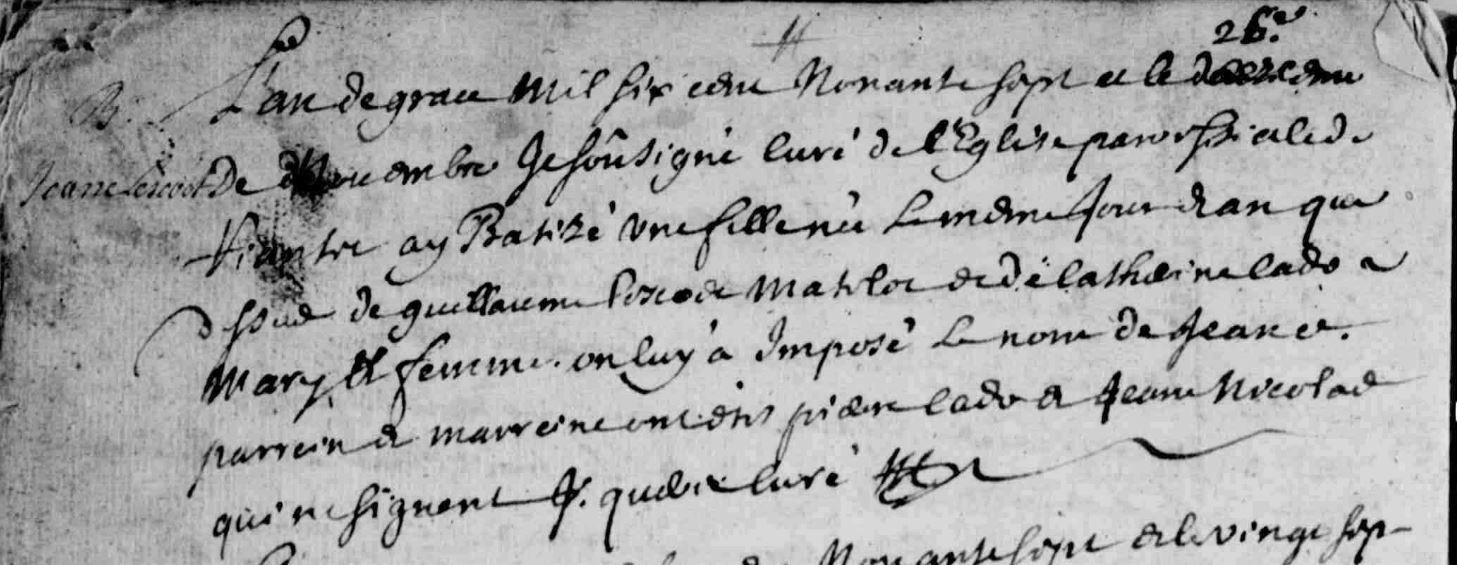 26.e
B. L'an de grace mil six cent Nonante sept et le
Jeanne Lescot De Nouembre Je soûsigné Curé de l'Eglise paroissiale de
ay Batizé vne fille née le meme Jour et an que
dessus de guillaume Matelot et de Catherine lado
Mary et femme. on luy à Imposé le nom de Jeane.
parrein et marreine ont étés pierre lado et Jeane Nicolad
qui ne signent Curé
Nonante sept et le vingt sep-